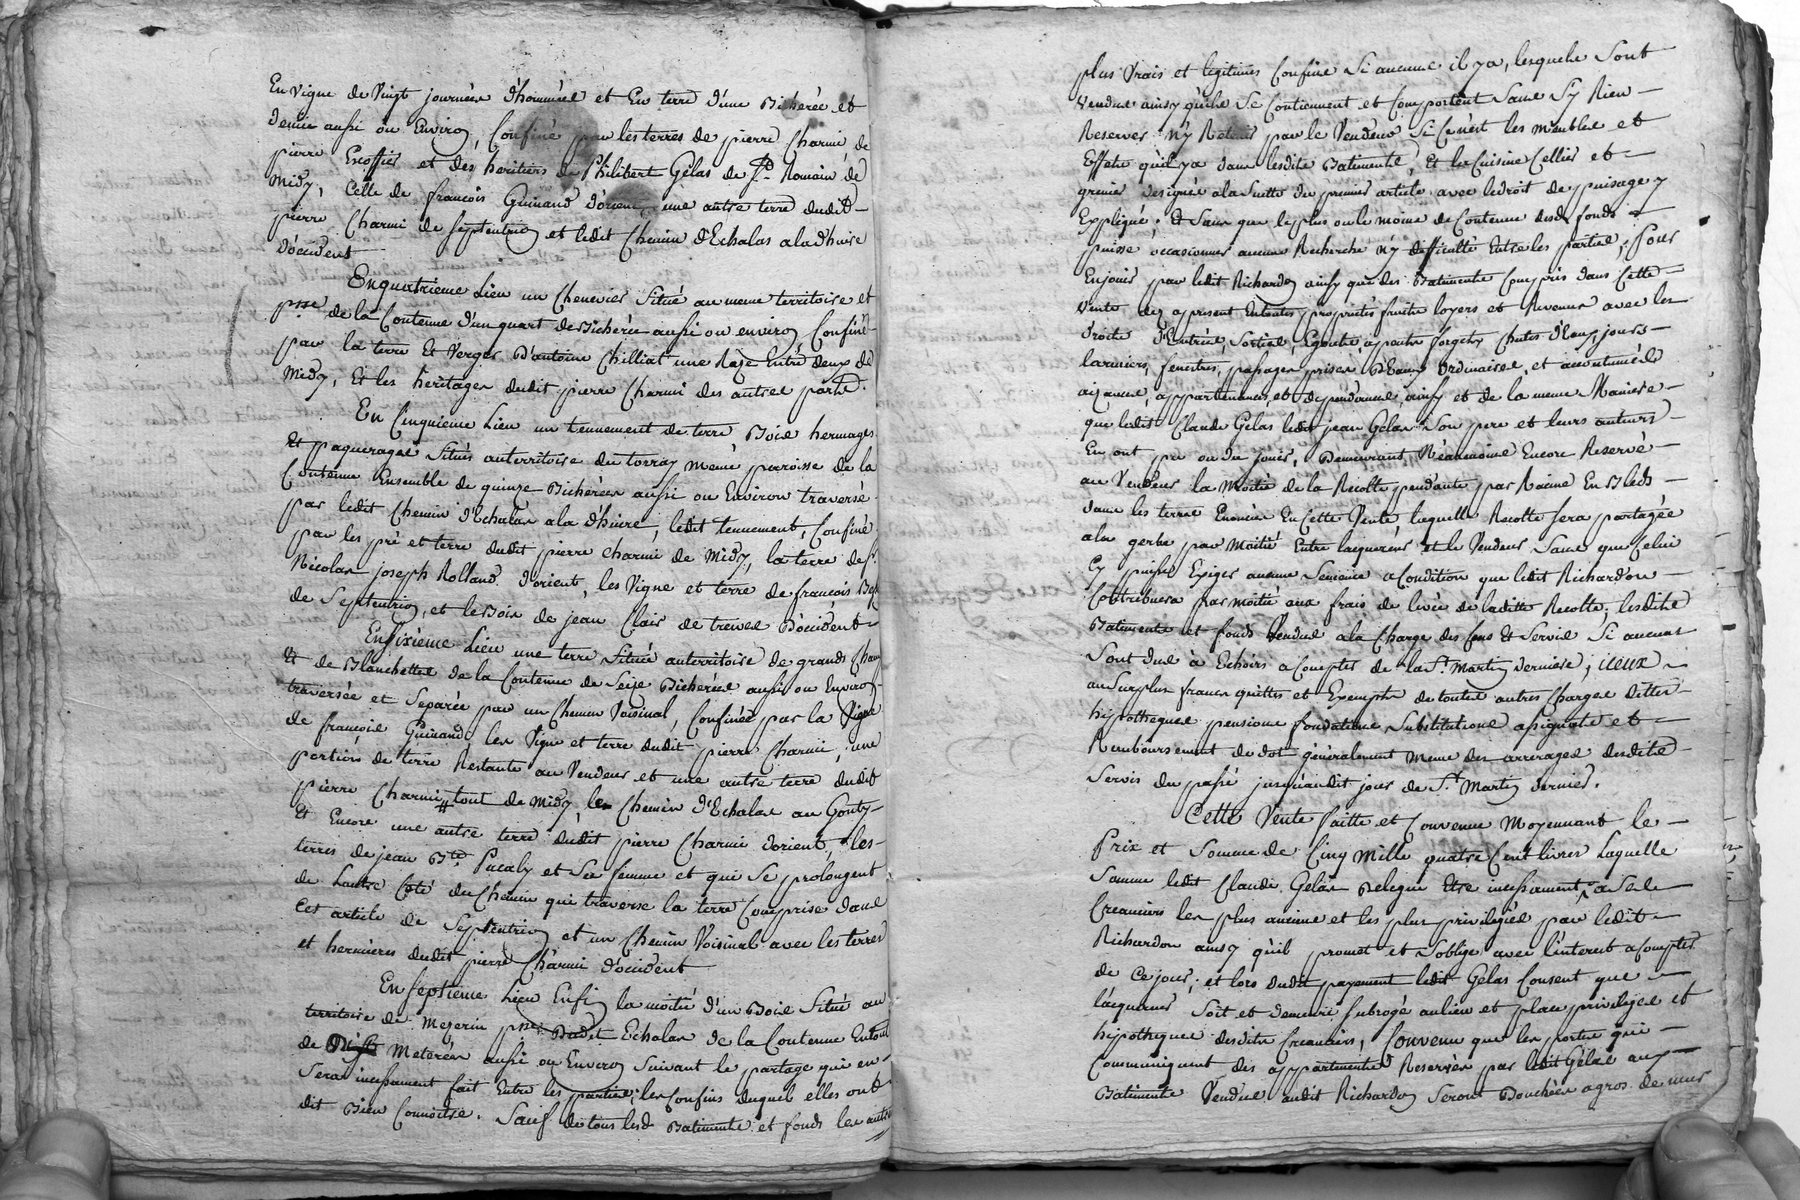 En vigne de Vingt journées d'hommée et En terre d'une Bicherée et
demie aussi ou Environ, Confiné par les terres de pierre Charmi de
pierre Escoffier et des heritiers de Philibert Gélas de St. Romain de
Midy, Celle de françois Guinand d'orient, une autre terre dudit
pierre Charmi de septentrion et ledit Chemin d'Echalas a la dhuire
d'occident
Enquatrieme Lieu un Chenevier Situé au meme territoire et
psse de la Contenue d'un quart de Bicherée aussi ou environ, Confiné
par la terre Et Verger d'antoine Chilliat une Raze Entre deux de
Midy, Et les heritages dudit pierre Charmi des autres parts.
En Cinquieme Lieu un tennement de terre, Bois hermages
Et paquerages Situés au territoire du torray meme paroisse de la
Contenue Ensemble de quinze Bicherées aussi ou Environ traversé
par ledit Chemin d'Echalas a la d'huire, ledit tennement, Confiné
par les pré et terre dudit pierre charmi de Midy, la terre de Sr.
Nicolas joseph Rolland d'orient, les Vigne et terre de francois
de Septentrion, et le Bois de jean Clair de treves d'occident
En sixieme Lieu une terre Située au territoire de grands Cham
Et de Blanchettes de la Contenue de Seize Bicherées aussi ou Environ
traversée et Separée par un Chemin Voisinal, Confinée par la Vigne
de françois Guinand, les Vigne et terre dudit pierre Charmi, une
portion de terre Restante au Vendeur et une autre terre dudit
pierre Charmi tout de Midy, le Chemin d'Echalas au Gonty
Et Encore une autre terre dudit pierre Charmi d'orient, les
terres de jean Bte. Pucaly et Sa femme et qui Se prolongent
de Lautre Coté du Chemin qui traverse la terre Comprise dans
Cet article de Septentrion et un Chemin Voisinal avec les terres
et hermieres dudit pierre Charmi d'occident
En septieme Lieu Enfin la moitié d'un Bois Situé au
territoire de Mezerin psse Dudit Echalas de la Contenue Entout
de Meterées aussi ou Environ Suivant le partage qui en
Sera incessament fait Entre les parties, les Confins duquel elles ont
dit Bien Connoitre. Sauf de tous lesd. Batiments et fonds les autres
plus Vrais et legitimes Confins Si aucuns il y a, lesquels Sont
vendus ainsy qu'ils Se Contiennent et Comportent Sans S'y Rien
Reserver n'y Retenir par le Vendeur Si Ce n'est les meubles et
Effets qu'il y a dans lesdits Batiments, Et les Cuisine Cellier et
grenier designés a la Suitte du premier article avec le droit de puisage y
Expliqué. Et Sans que le plus ou le moins de Contenue desd. fonds
puisse occasionner aucune Recherche n'y difficulté Entre les parties, Pour
Enjouir par ledit Richardon ainsy que des Batiments Compris dans Cette
Vente des apresent Entoutes proprietés fruits loyers et Revenus avec les
droits d'Entrées, Sorties, Egouts, Chutes d'Eaux, jours
larmiers, fenetres, passages prises d'Eaux ordinaires, et accoutumés
aizances, appartenances, et dependances ainsy et de la meme Maniere
que ledit Claude Gelas ledit jean Gelas Son pere et leurs auteurs
En ont pu ou du jouir, Demeurant Néanmoins Encore Reservé
au Vendeur la Moitié de la Recolte pendante par Racine En Bleds
dans les terres Enoncées En Cette Vente laquelle Recolte sera partagée
a la gerbe par Moitié Entre lacquereur et le Vendeur Sans que Celui
Cy puisse Exiger aucune Semence a Condition que ledit Richardon
Contribuera par moitié aux frais de levée de ladite Recolte; lesdits
Batiments et fonds Vendus a la Charge des Cens Et Servis Si aucuns
Sont dus à Echoir a Compter de la St. Martin derniere; iceux
au Surplus francs quittes et Exempts de toutes autres Charges dettes
hipotheques pensions fondations Substitutions assignats et
Remboursement de dot generalement meme des arrerages desdits
Servis du passé jusquaudit jour de St. Martin dernier.
Cette Vente faitte et Convenue Moyennant le
Prix et Somme de Cinq Mille quatre Cent livres Laquelle
Somme ledit Claude Gelas Delegue Etre incessament a Ses
Creanciers les plus anciens et les plus privilegiés par ledit
Richardon ainsy qu'il promet et S'oblige avec l'interet a Compter
de Ce jour; et lors dudit payement ledit Gelas Consent que
l'acquereur Soit et demeure Subrogé au lieu et place privileges et
hipotheques desdits Creanciers, Convenu que les portes qui
Communiquent des appartements Reservés par ledit Gélas aux
Batiments Vendus audit Richardon Seront Bouchées a gros de mur